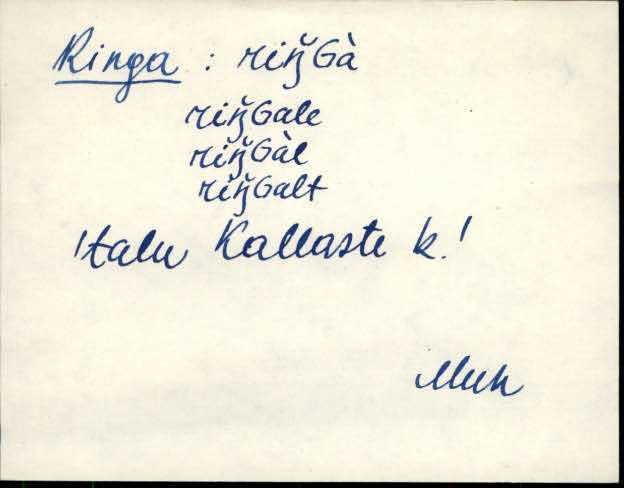 Ringa : riŋ̆Gà
riŋ̆Gale
riŋ̆Gàl
riŋ̆Galt
'talu Kallaste k.'
Muh